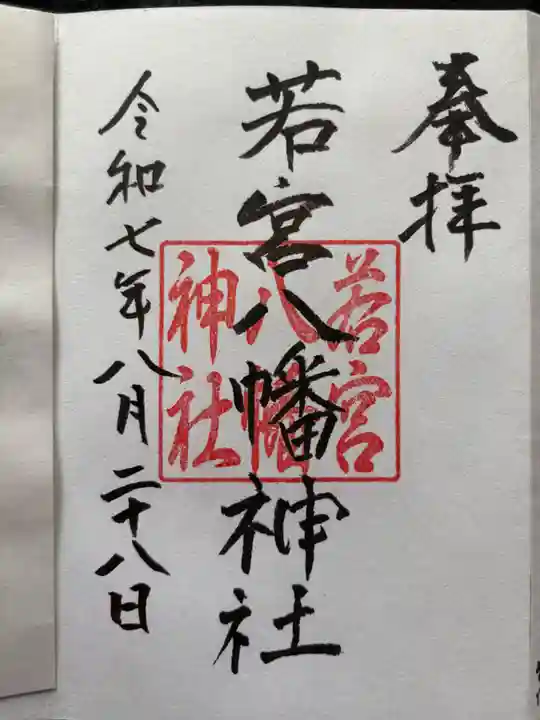 奉拝
若宮八幡神社
令和七年八月二十八日
若宮
八幡
神社